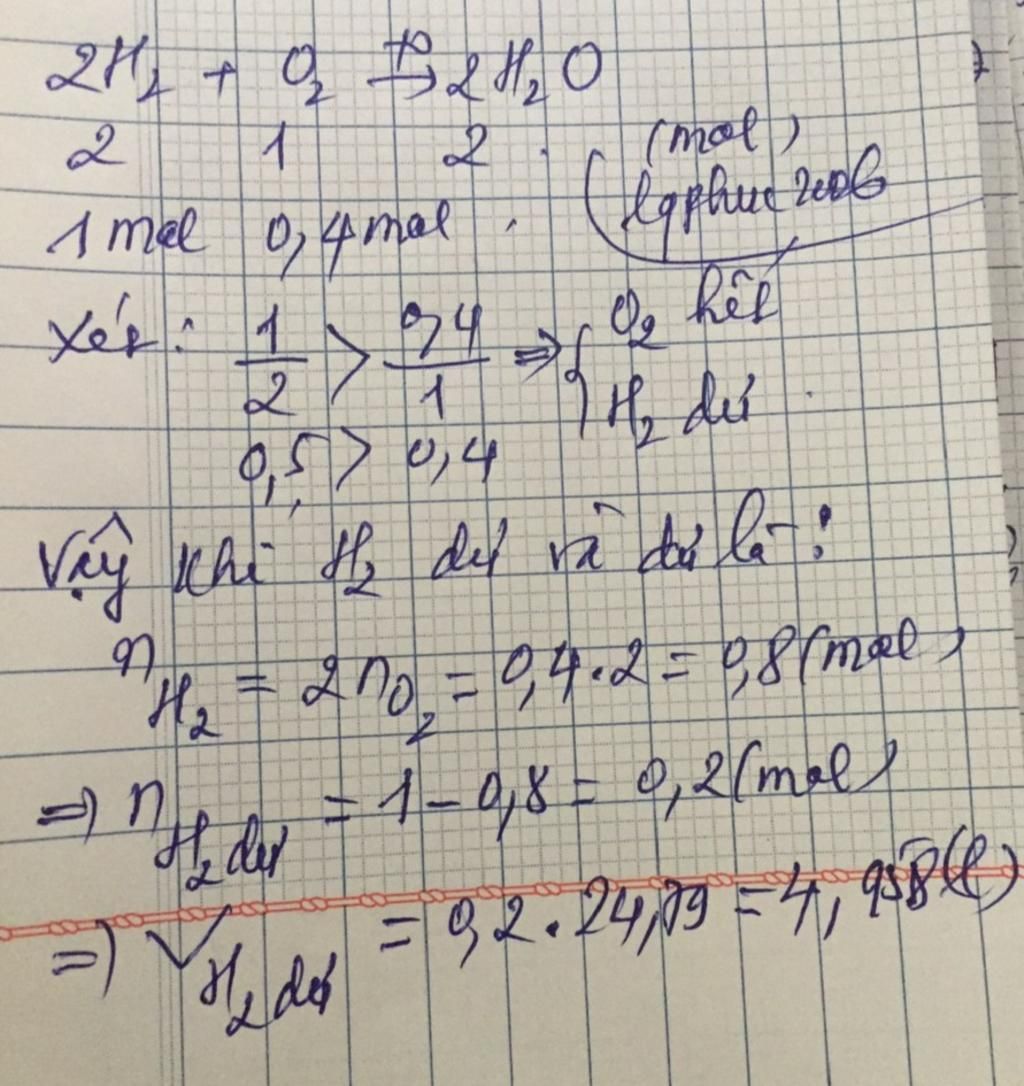 2H₂ + O₂ →(t⁰) 2H₂O
2 1 2 (mol)
1 mol 0,4 mol .
Xét: 1/2 > 0,4/1 ⇒ { O₂ hết
H₂ dư
0,5 > 0,4
Vậy khí H₂ dư và dư là:
n H₂ = 2nO₂ = 0,4.2 = 0,8 (mol)
⇒ n H₂ dư = 1 - 0,8 = 0,2 (mol)
⇒ V H₂ dư = 0,2.24,79 = 4,958 (l)